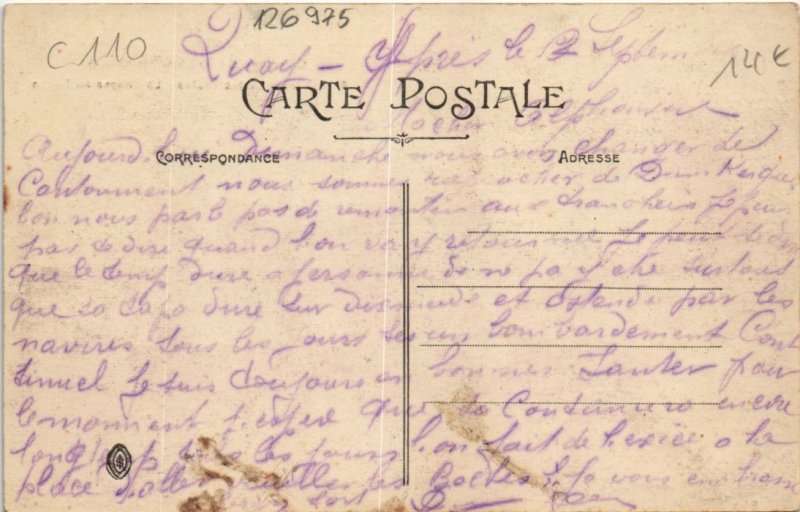 126975
C 110
14 €
Après le 12 Septem
CARTE POSTALE
Alphonse
CORRESPONDANCE
ADRESSE
Aujourd'hui Dimanche nous avons changer de
Contonment nous sommes raprocher de Dunkerque
lon nous parle pas de remonter aux trancheis Je peux
pas te dire quand lon va y retourner Je peux te dire
que le temp dure a personne de ne pa y etre surtous
que sa tape dure sur dixmude et Ostende par les
navires tous les jours ses un bombardement Cont
tinuel Je suis toujours en bonne santer pour
le momment Jespere que sa Continuera encore
longtemp tous les jours lon fait de lexice a la
place daller les Boches Je vous embrasse